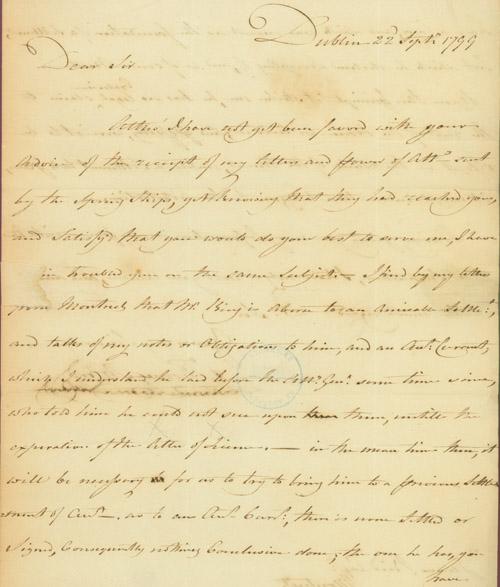 Dublin 22 Septr. 1799
Dear Sir
Altho' I have not yet been favord with your
Advice of the receipt of my letters and Power of Atty sent
by the Spring Ships, yet knowing that they had reached you,
and Satisfyd that you would do your best to serve me, I have
in troubled you on the same Subject — I find by my letter
from Montreal that Mr. King is Averse to an Amicable Settlet.,
and talks of my notes or Obligations to him, and an Act. Current,
which I understand he laid before the Atty. Genl. some time since,
who told him he could not sue upon them, untill the
experation of the Letter of Licence. — in the mean time then, it
will be necessary for us to try to bring him to a previous Settle
ment of Acts. as to an Act. Curt., there is none Settled or
Signed, Consequently nothing Conclusive done; the one he has, you
have